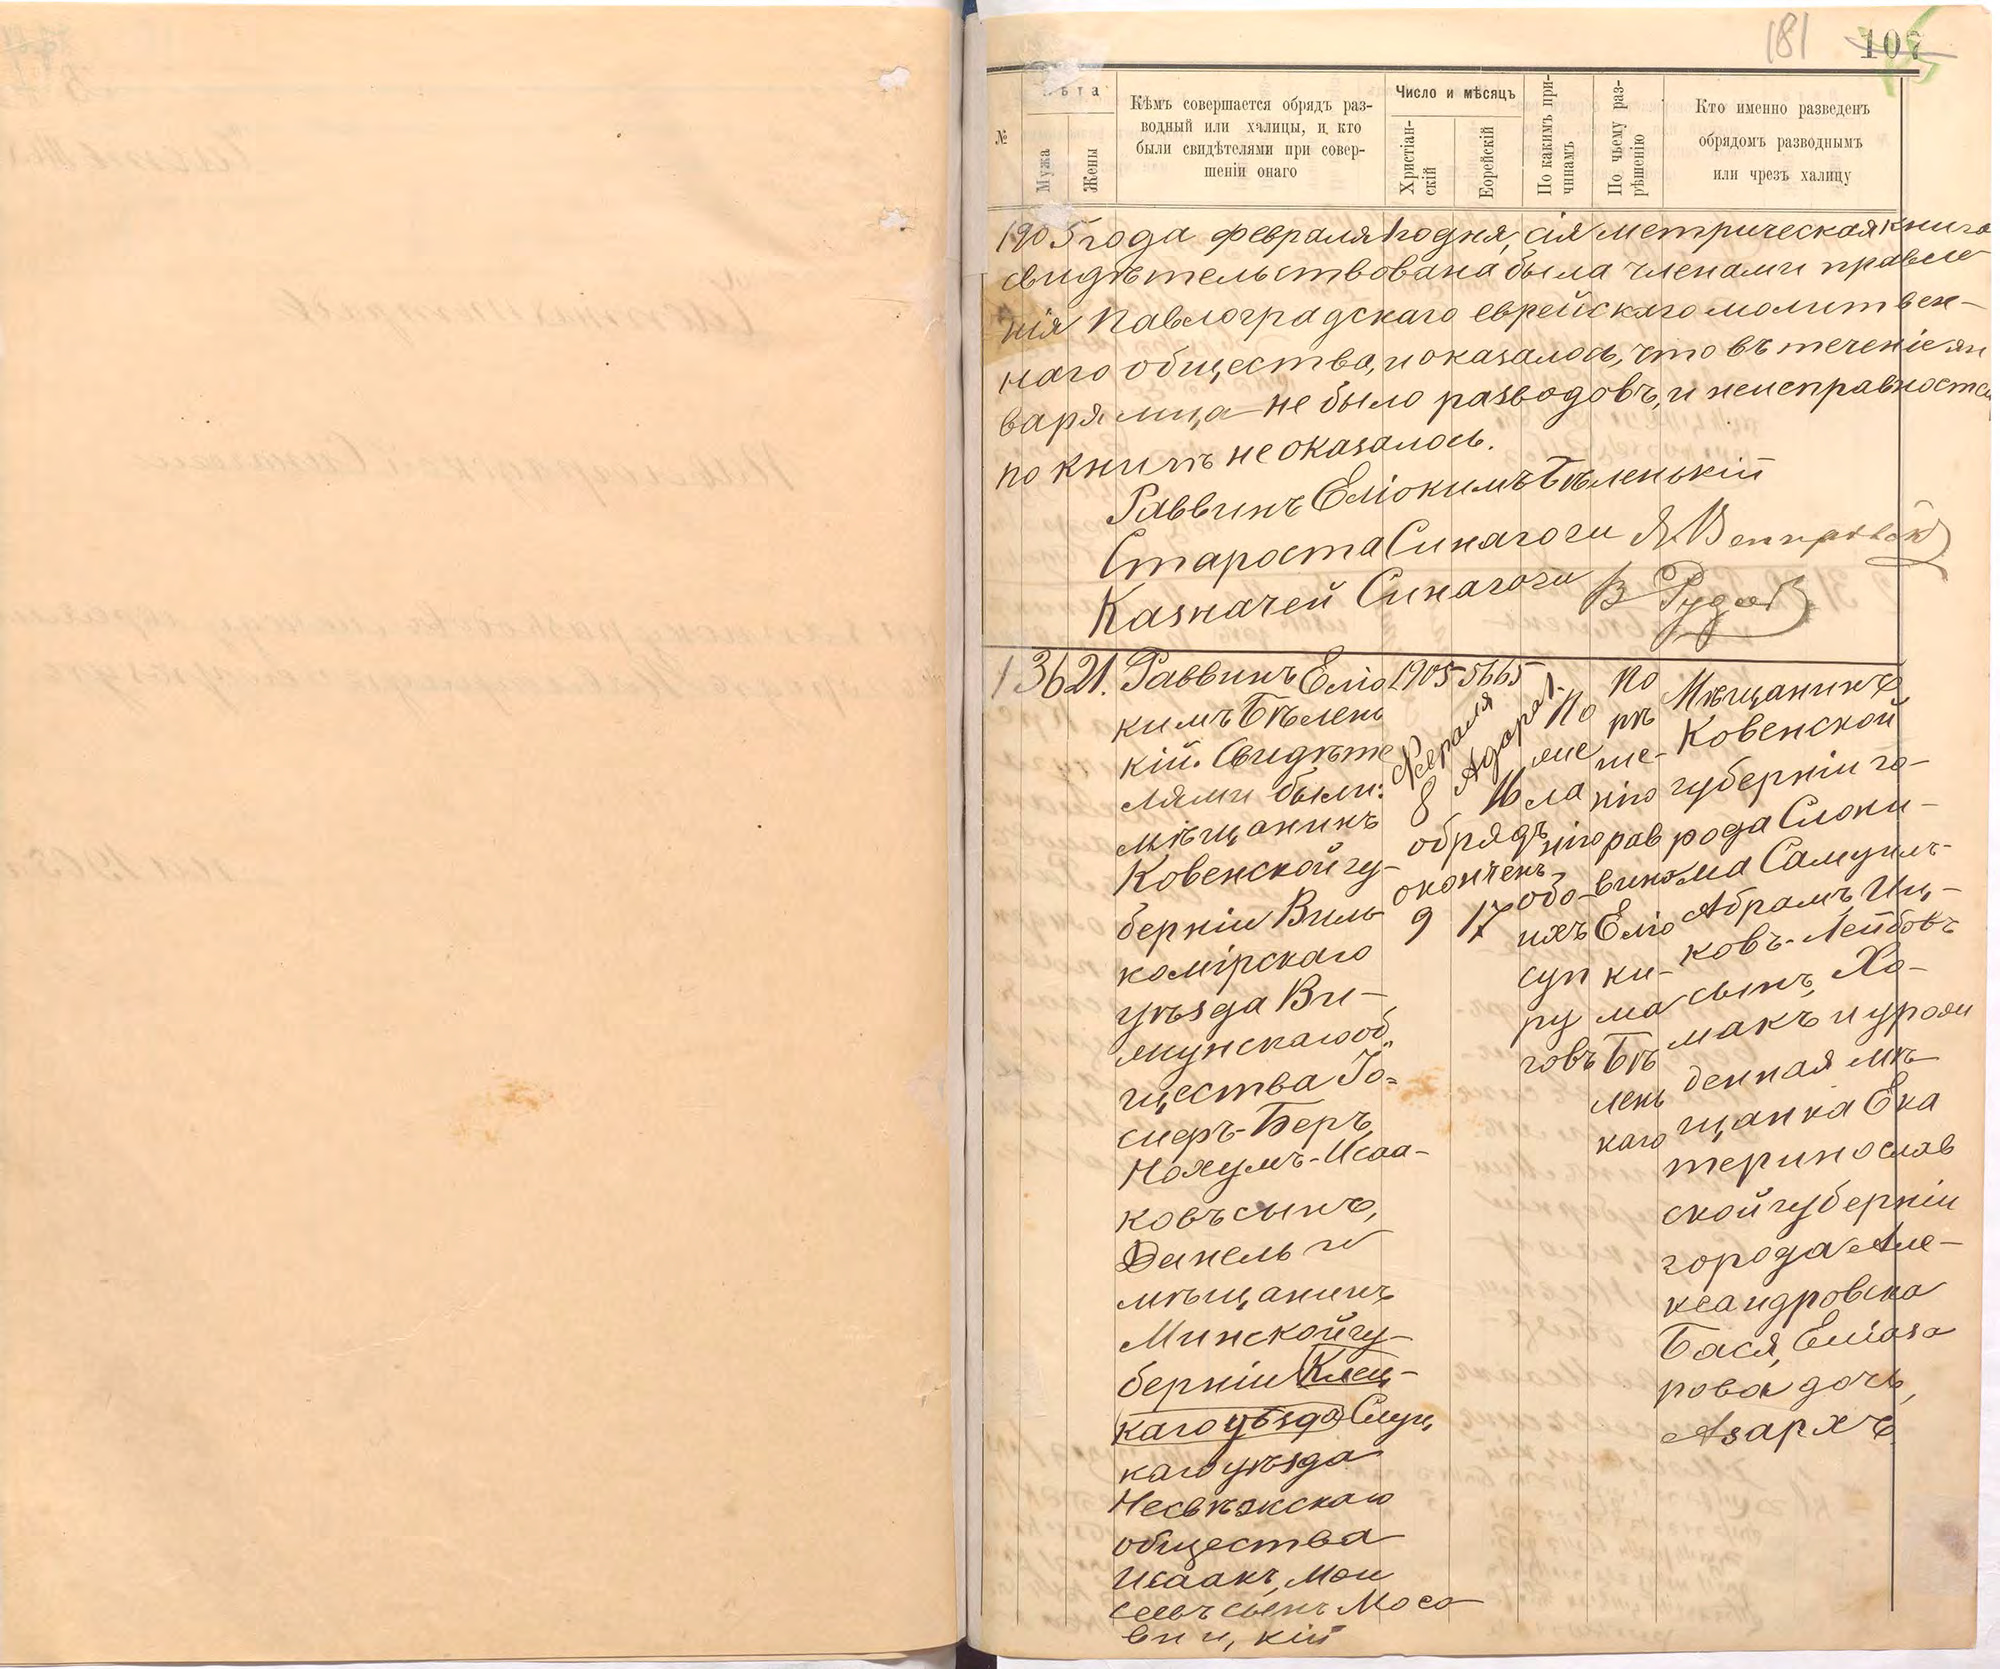 181
107
№
Лѣта
Мужа
Жены
Кѣмъ совершается обрядъ раз-
водный или халицы, и кто
были свидѣтелями при совер-
шеніи онаго
Число и мѣсяцъ
Христіан-
скій
Еврейскій
По какимъ при-
чинамъ
По чьему раз-
рѣшенію
Кто именно разведенъ
обрядомъ разводнымъ
или чрезъ халицу
1905 года февраля 1го дня, сія метрическая книга
свидѣтельствована была членами правле
нія Павлоградскаго еврейскаго молитвен-
наго общества, и оказалось, что въ теченіе ян
варя м-ца не было разводовъ, и неисправностей
по книгѣ не оказалось.
Раввинъ Еліокимъ Бѣленькій
Староста Синагоги Я.
Казначей Синагоги В
1
36
21.
Раввинъ Еліо
кимъ Бѣлень
кій. Свидѣте
лями были:
мѣщанинъ
Ковенской гу-
берніи Виль
комірскаго
уѣзда Ви-
жунскаго об
щества Іо-
сифъ-Беръ
Нохумъ-Исаа-
ковъ сынъ,
Данель и
мѣщанинъ
Минской гу-
берніи Клец-
каго уѣзда Слуц
каго уѣзда
Несвѣжскаго
общества
Исаакъ Мои
сеевъ сынъ Мосо
вицкій
1905
Февраля
8
5665
Адара 1.
16
обрядъ
оконченъ
9 17
По
же
ла
нію
обо-
ихъ
суп
ру
говъ
По
рѣ
ше-
нію
рав
вина
Еліо
ки-
ма
Бѣ
лень
каго
Мѣщанинъ
Ковенской
губерніи го-
рода Слоки-
ма Самуилъ-
Абрамъ Иц-
ковъ-Лейбовъ
сынъ, Хо-
макъ и урож
денная мѣ-
щанка Ека
теринослав
ской губерніи
города Але-
ксандровска
Бася, Еліаза
рова дочь,
Азархъ